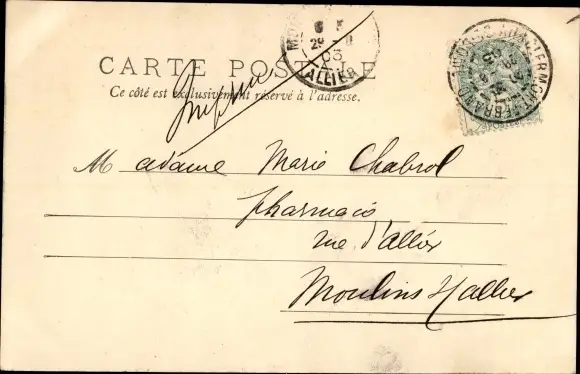 CARTE POSTALE
Ce côté est exclusivement réservé à l'adresse.
29
03
ALLIER
Madame Marie Chabrol
pharmacie
rue d'allier
Moulins s/allier